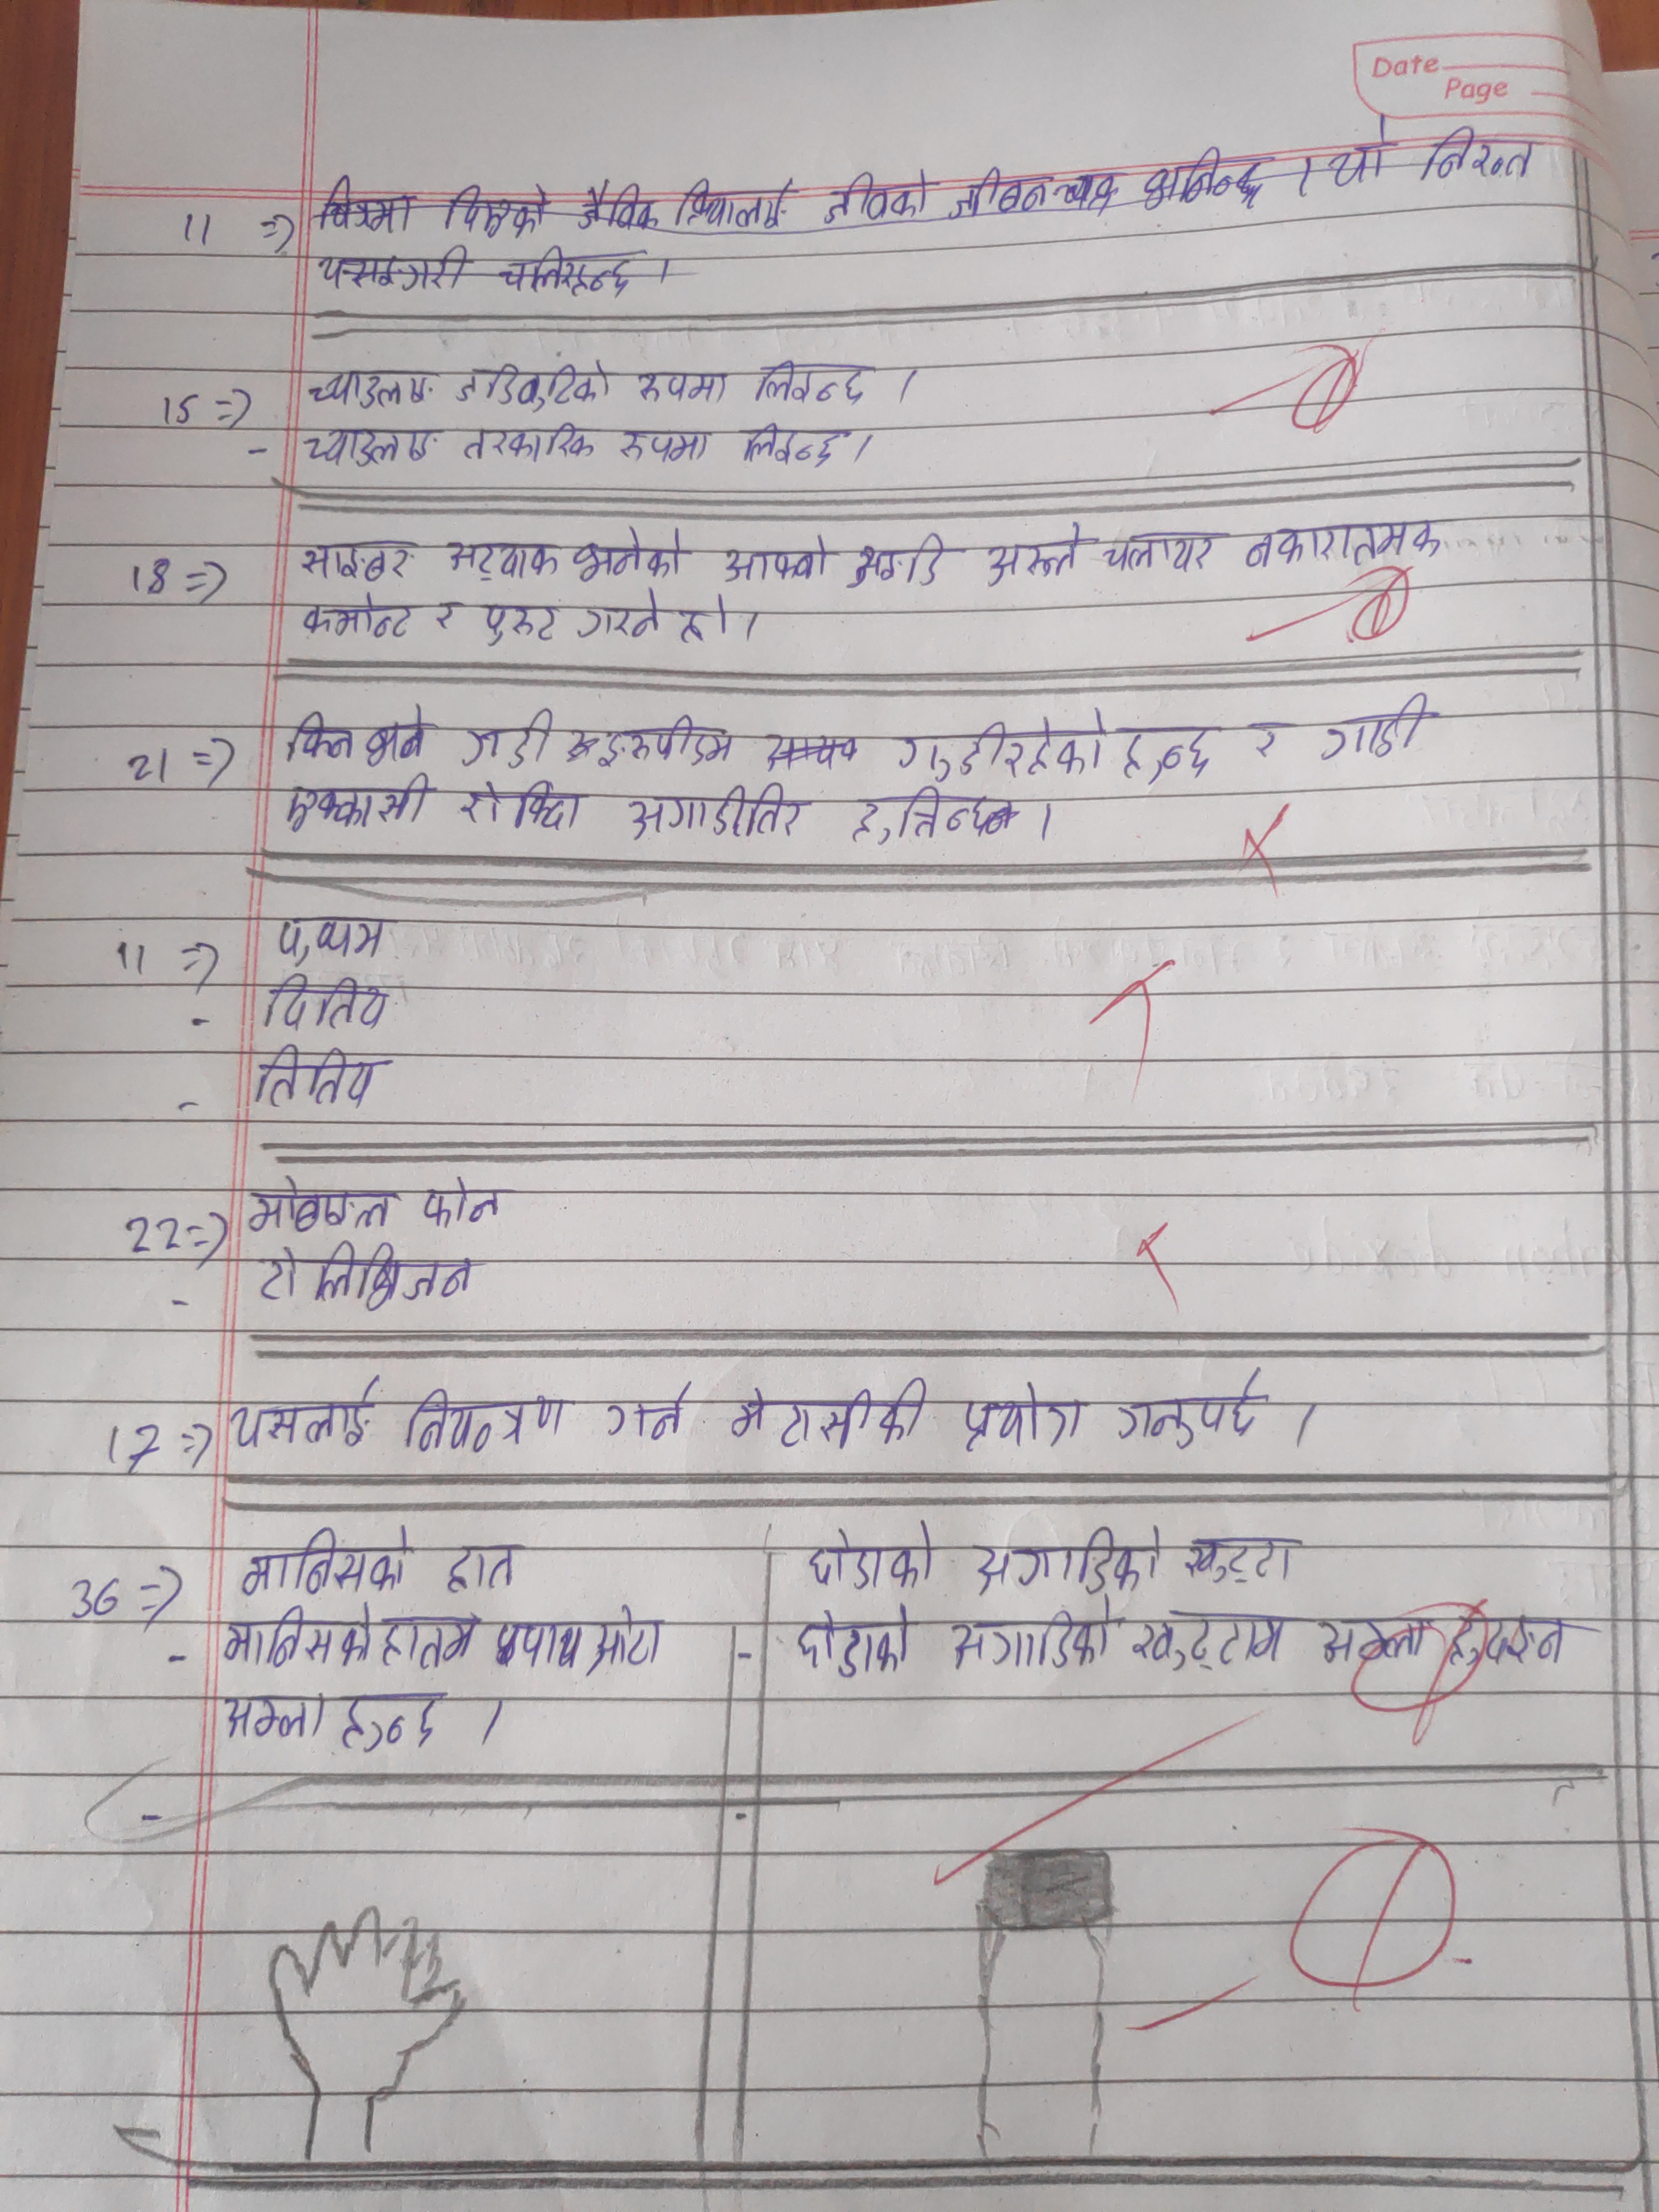 Date
Page
11 => चित्रमा दिइएको जैविक क्रियालाई जीवको जीवन चक्र भनिन्छ । यो निरन्त
यसइगरी चलिरहन्छ ।
15 => च्याउलाइ जडिबुटिको रूपमा लिइन्छ ।
- च्याउलाइ तरकारिक रूपमा लिइन्छ ।
18 => साइबर अट्याक भनेको आफ्नो आइडि अरूले चलायर नकारात्मक
कमेन्ट र पुस्ट गरने हो ।
21 => किन भने गाडी गुडीरहेको हुन्छ र गाडी
एक्कासी रोक्दिा अगाडीतिर हुत्तिन्छन ।
11 => प्रथम
- दितिय
- तितिय
22 => मोबाइल फोन
- टेलिभिजन
17 => यसलाई नियन्त्रण गर्न मेटासीकी प्रयोग गर्नुपर्छ ।
36 => मानिसको हात घोडाको अगाडिको खुट्टा
- मानिसको हातम पाच ओटा - घोडाको अगाडिको खुट्टाम अम्ला हुदइन
अम्ला हुन्छ ।